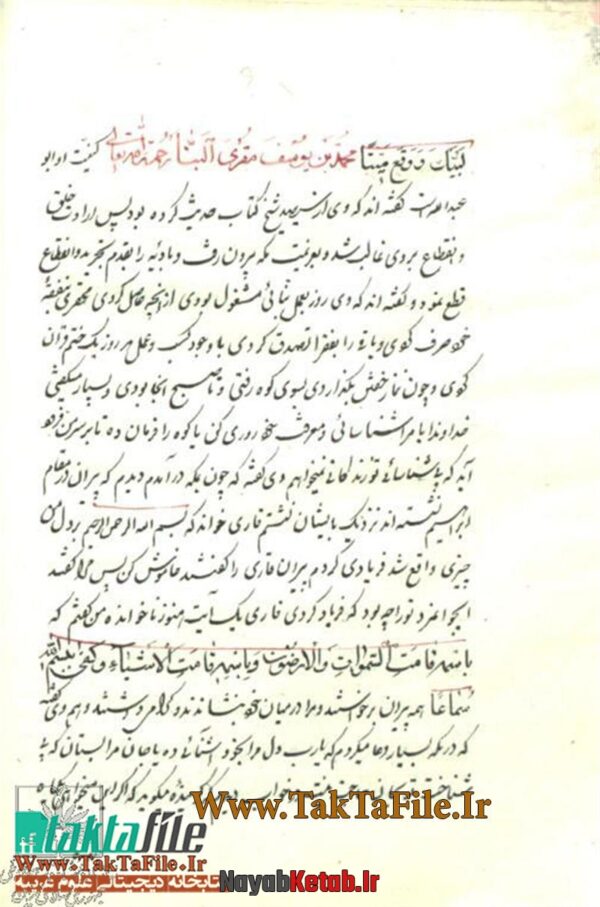 لبیک و وقع میتا محمد بن یوسف مقری البنا رحمة الله تعالی کنیت او ابو
عبدالله است گفته اند که وی از سیصد شیخ کتاب حدیث کرده بود پس ارادت خلق
و انقطاع بر وی غالب شد و بعزیمت مکه بیرون رفت و بادیه را بقدم تجرید و انقطاع
قطع نمود و گفته اند که وی روز بعمل بنائی مشغول بودی از آنچه حاصل کردی محقری بنفقهٔ
خود صرف کردی و باقی را بفقرا تصدق کردی با وجود کسب و عمل هر روز یک ختم قرآن
کردی و چون نماز خفتن بگذاردی بسوی کوه رفتی و تا صبح آنجا بودی و بسیار میگفتی
خداوندا یا مرا شناسائی و معرفت خود روزی کن یا کوه را فرمان ده تا بر سر من فرود
آید که بی شناسائی تو زندگانی نمیخواهم وی گفته که چون بمکه در آمدم دیدم که پیران در مقام
ابراهیم نشسته اند نزدیک بایشان نشستم قاری خواند که بسم الله الرحمن الرحیم بر دل من
چیزی واقع شد فریادی کردم پیران قاری را گفتند خاموش کن پس مرا گفتند
ای جوانمرد ترا چه بود که فریاد کردی قاری یک آیت هنوز ناخوانده من گفتم که
باسمه قامت السموات والارضون وباسمه قامت الاشیاء وکفی باسم الله
سماعا همه پیران برخاستند و مرا در میان خود بنشاندند و گرامی داشتند و هم وی گفته
که در مکه بسیار دعا میکردم که یارب دل مرا بخود آشنائی ده یا جان مرا بستان که بی
شناخت تو
www.TakTaFile.Ir
taktafile
www.TakTaFile.Ir
کتابخانه دیجیتالی علوم غریبه
NayabKetab.Ir